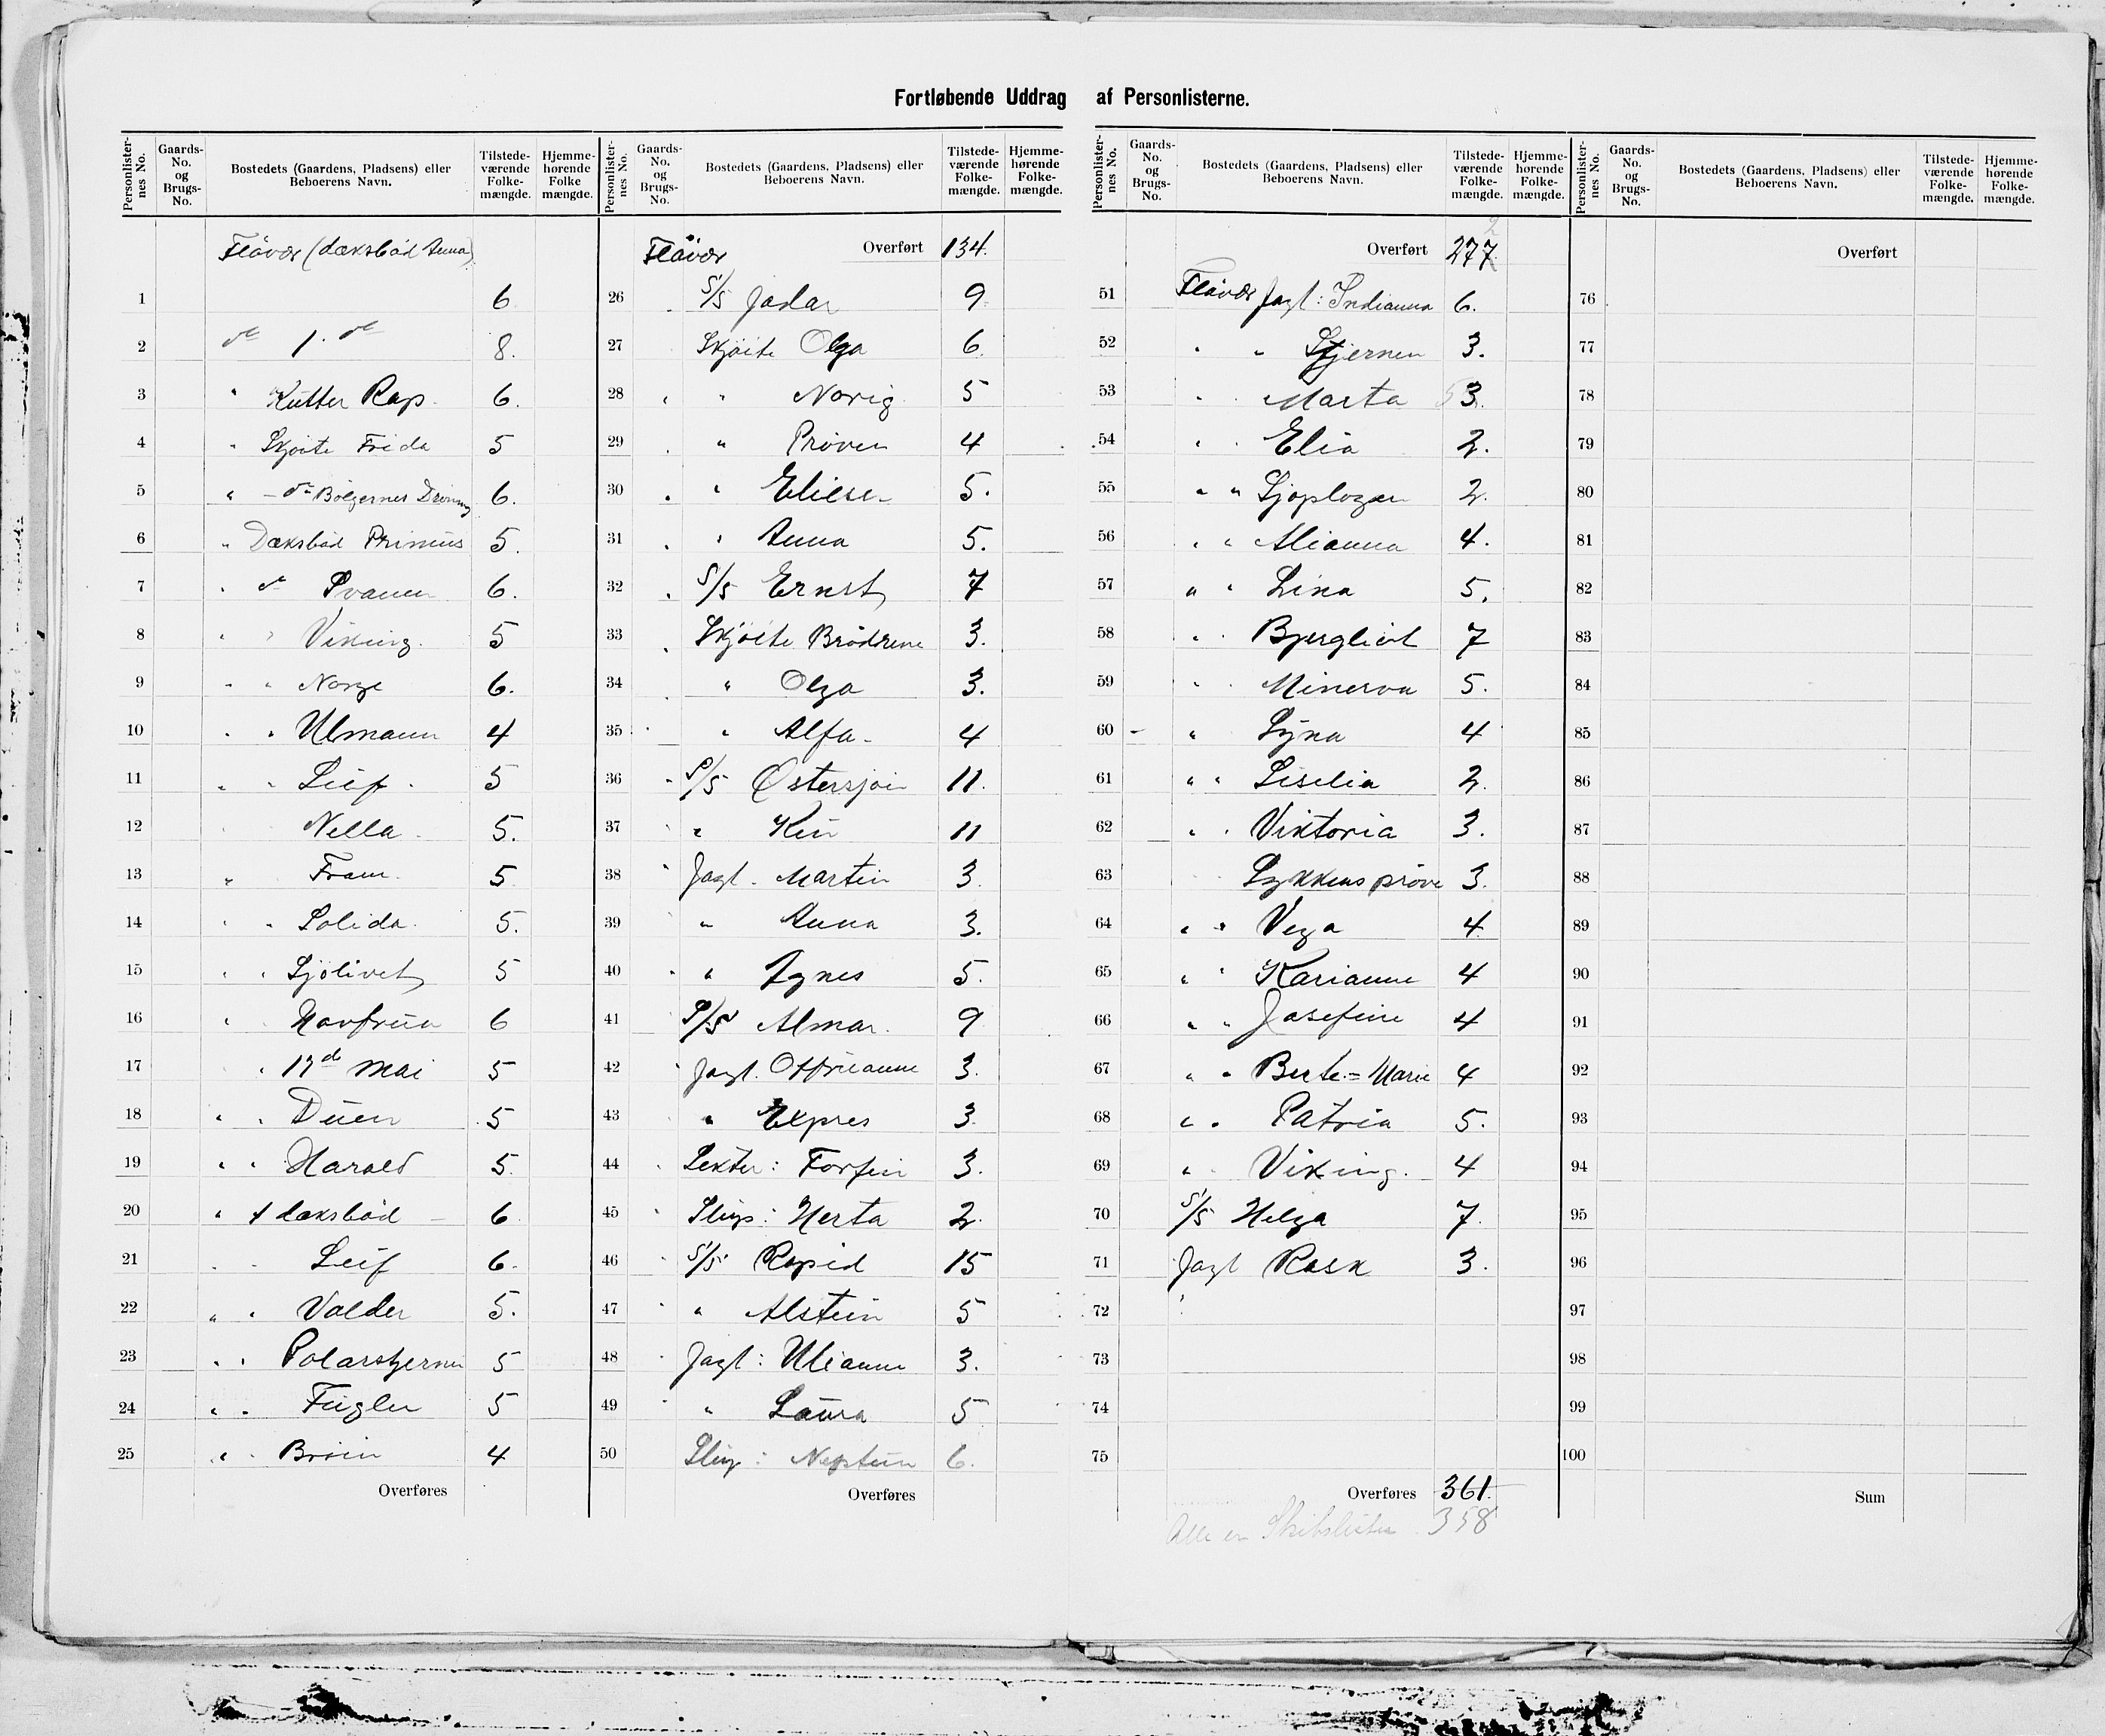 Fortløbende Uddrag af Personlisterne.
Personlister-nes No. Gaards-No. og Brugs-No. Bostedets (Gaardens, Pladsens) eller Beboerens Navn. Tilstede-værende Folke-mængde. Hjemme-hørende Folke mængde.
Flåvær (dæksbåd Anna)
1 6
2 do 1. do 8.
3 " Kutter Rap. 6.
4 " Skjöite Frida 5
5 " - do Bölgernes Dronning 6.
6 " Dæksbåd Primus 5.
7 " do Svanen 6.
8 " " Viking. 5
9 " " Norge 6.
10 " " Ulmann 4
11 " " Leif. 5
12 Nella. 5.
13 " Fram. 5
14 " " Solida. 5.
15 " " Sjölivet 5
16 " Havfrun 6
17 " 17d Mai 5
18 " " Duen 5
19 " " Harald 5.
20 " 1 dæksbåd - 6
21 " " Leif 6.
22 " " Valder 5.
23 " " Polarstjernen 5
24 " " Fuglen 5
25 " " Bröin 4
Overføres
Personlister-nes No. Gaards-No. og Brugs-No. Bostedets (Gaardens, Pladsens) eller Beboerens Navn. Tilstede-værende Folke-mængde. Hjemme-hørende Folke-mængde.
Flåvær Overført 134.
26 S/S Jadar 9
27 Skjöite Olga 6.
28 " " Norig 5
29 " Pröven 4
30 " " Eliese 5.
31 " " Anna 5.
32 " S/S Ernst 7
33 " Skjöite Brödrene 3.
34 " Olga 3.
35 " Alfa - 4
36 " S/S Östersjöin 11.
37 " " Kun 11
38 " Jagt. Martin 3.
39 " Anna 3.
40 " " Agnes 5.
41 S/S Almar. 9
42 " Jagt. 3.
43 " Expres 3
44 " Lekter: Torfin 3.
45 " Slup: Herta 2.
46 " S/S Rapid 15
47 " " Alstein 5
48 " Jagt: Ulianne 3.
49 " " Laura 5
50 Slup: Neptun 6.
Overføres
Personlister-nes No. Gaards-No. og Brugs-No. Bostedets (Gaardens, Pladsens) eller Beboerens Navn. Tilstede-værende Folke-mængde. Hjemme-hørende Folke-mængde.
Overført 277 2
51 Flåvær Jagt: Indianna 6.
52 " " Stjernen 3.
53 " " Marta 5 3.
54 " " Elia 2.
55 " " Sjöplogen 2.
56 " " Alianna 4.
57 " " Lina 5.
58 " " Bjergliot 7
59 " " Minerva 5.
60 - " Syna 4
61 " " Liselia 2.
62 " " Viktoria 3.
63 Lykkens pröve 3.
64 " " Vega 4
65 " " Karianne 4
66 " " Josefine 4
67 " " Berte=Marie 4
68 " " Patria 5.
69 " " Viking. 4
70 S/S Helga 7.
71 Jagt Rask 3.
72
73
74
75
Overføres 361.
Alle er Skibslister. 358
Personlister-nes No. Gaards-No. og Brugs-No. Bostedets (Gaardens, Pladsens) eller Beboerens Navn. Tilstede-værende Folke-mængde. Hjemme-hørende Folke-mængde.
Overført
76
77
78
79
80
81
82
83
84
85
86
87
88
89
90
91
92
93
94
95
96
97
98
99
100
Sum